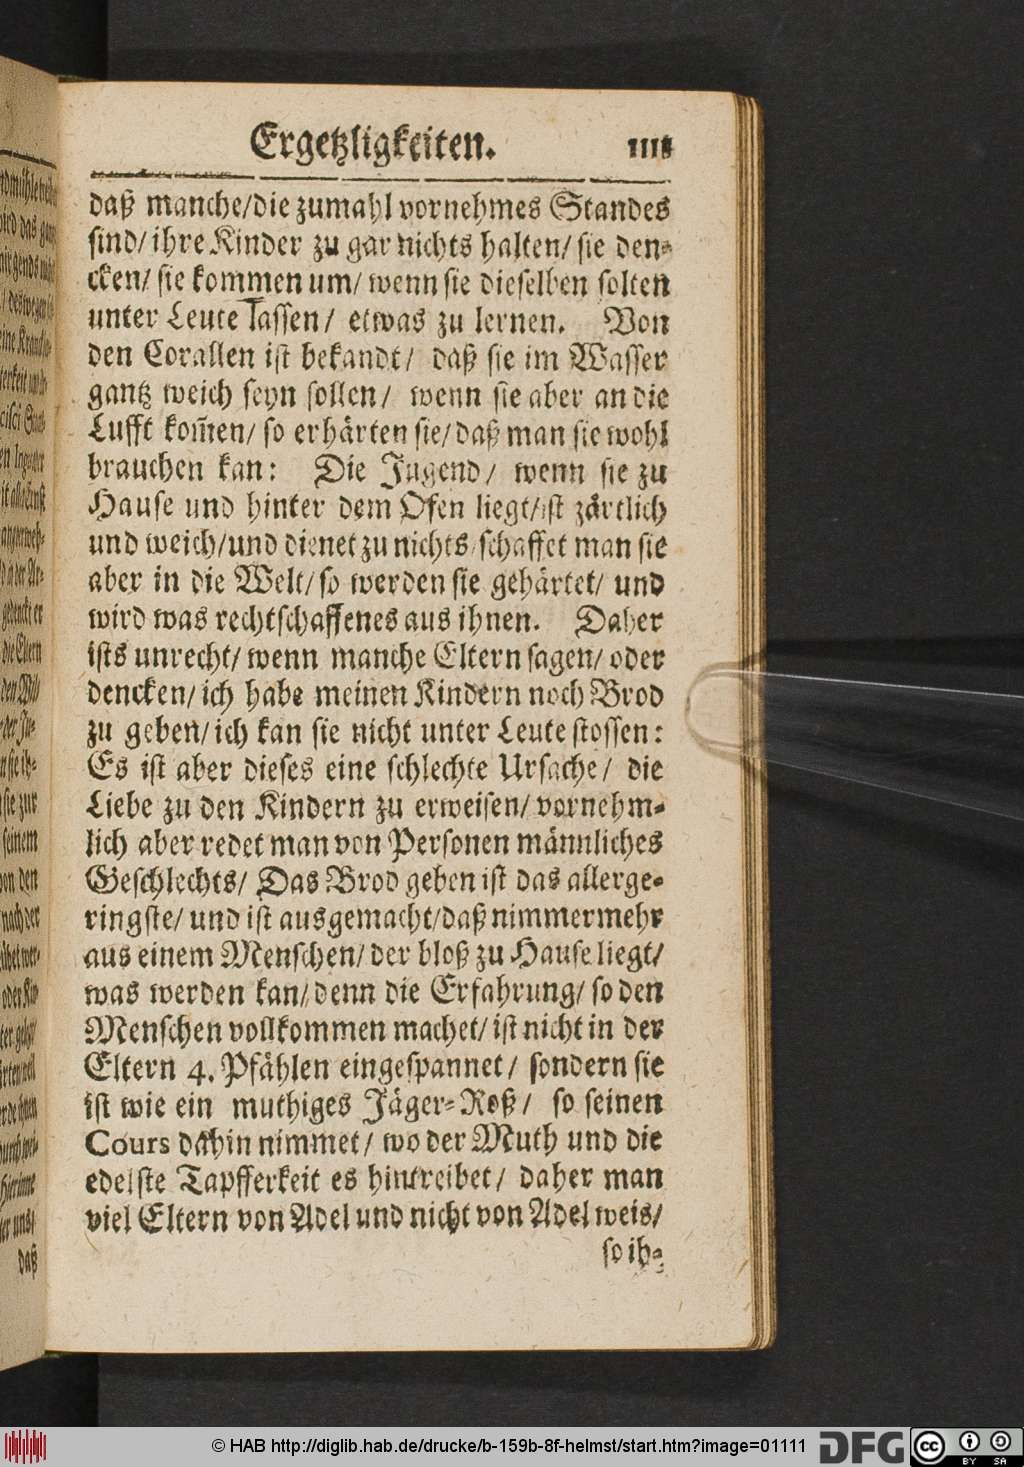 Ergetzligkeiten. 1111
daß manche/die zumahl vornehmes Standes
sind/ ihre Kinder zu gar nichts halten/ sie den-
cken/ sie kommen um/ wenn sie dieselben solten
unter Leute lassen/ etwas zu lernen. Von
den Corallen ist bekandt/ daß sie im Wasser
gantz weich seyn sollen/ wenn sie aber an die
Lufft kom̃en/ so erhärten sie/ daß man sie wohl
brauchen kan: Die Jugend/ wenn sie zu
Hause und hinter dem Ofen liegt/ist zärtlich
und weich/und dienet zu nichts/schaffet man sie
aber in die Welt/ so werden sie gehärtet/ und
wird was rechtschaffenes aus ihnen. Daher
ists unrecht/ wenn manche Eltern sagen/ oder
dencken/ ich habe meinen Kindern noch Brod
zu geben/ ich kan sie nicht unter Leute stossen:
Es ist aber dieses eine schlechte Ursache/ die
Liebe zu den Kindern zu erweisen/ vornehm-
lich aber redet man von Personen männliches
Geschlechts/ Das Brod geben ist das allerge-
ringste/ und ist ausgemacht/daß nimmermehr
aus einem Menschen/ der bloß zu Hause liegt/
was werden kan/ denn die Erfahrung/ so den
Menschen vollkommen machet/ ist nicht in der
Eltern 4. Pfählen eingespannet/ sondern sie
ist wie ein muthiges Jäger-Roß/ so seinen
Cours dahin nimmet/ wo der Muth und die
edelste Tapfferkeit es hintreibet/ daher man
viel Eltern von Adel und nicht von Adel weis/
so ih-
daß
© HAB http://diglib.hab.de/drucke/b-159b-8f-helmst/start.htm?image=01111
DFG
cc BY SA